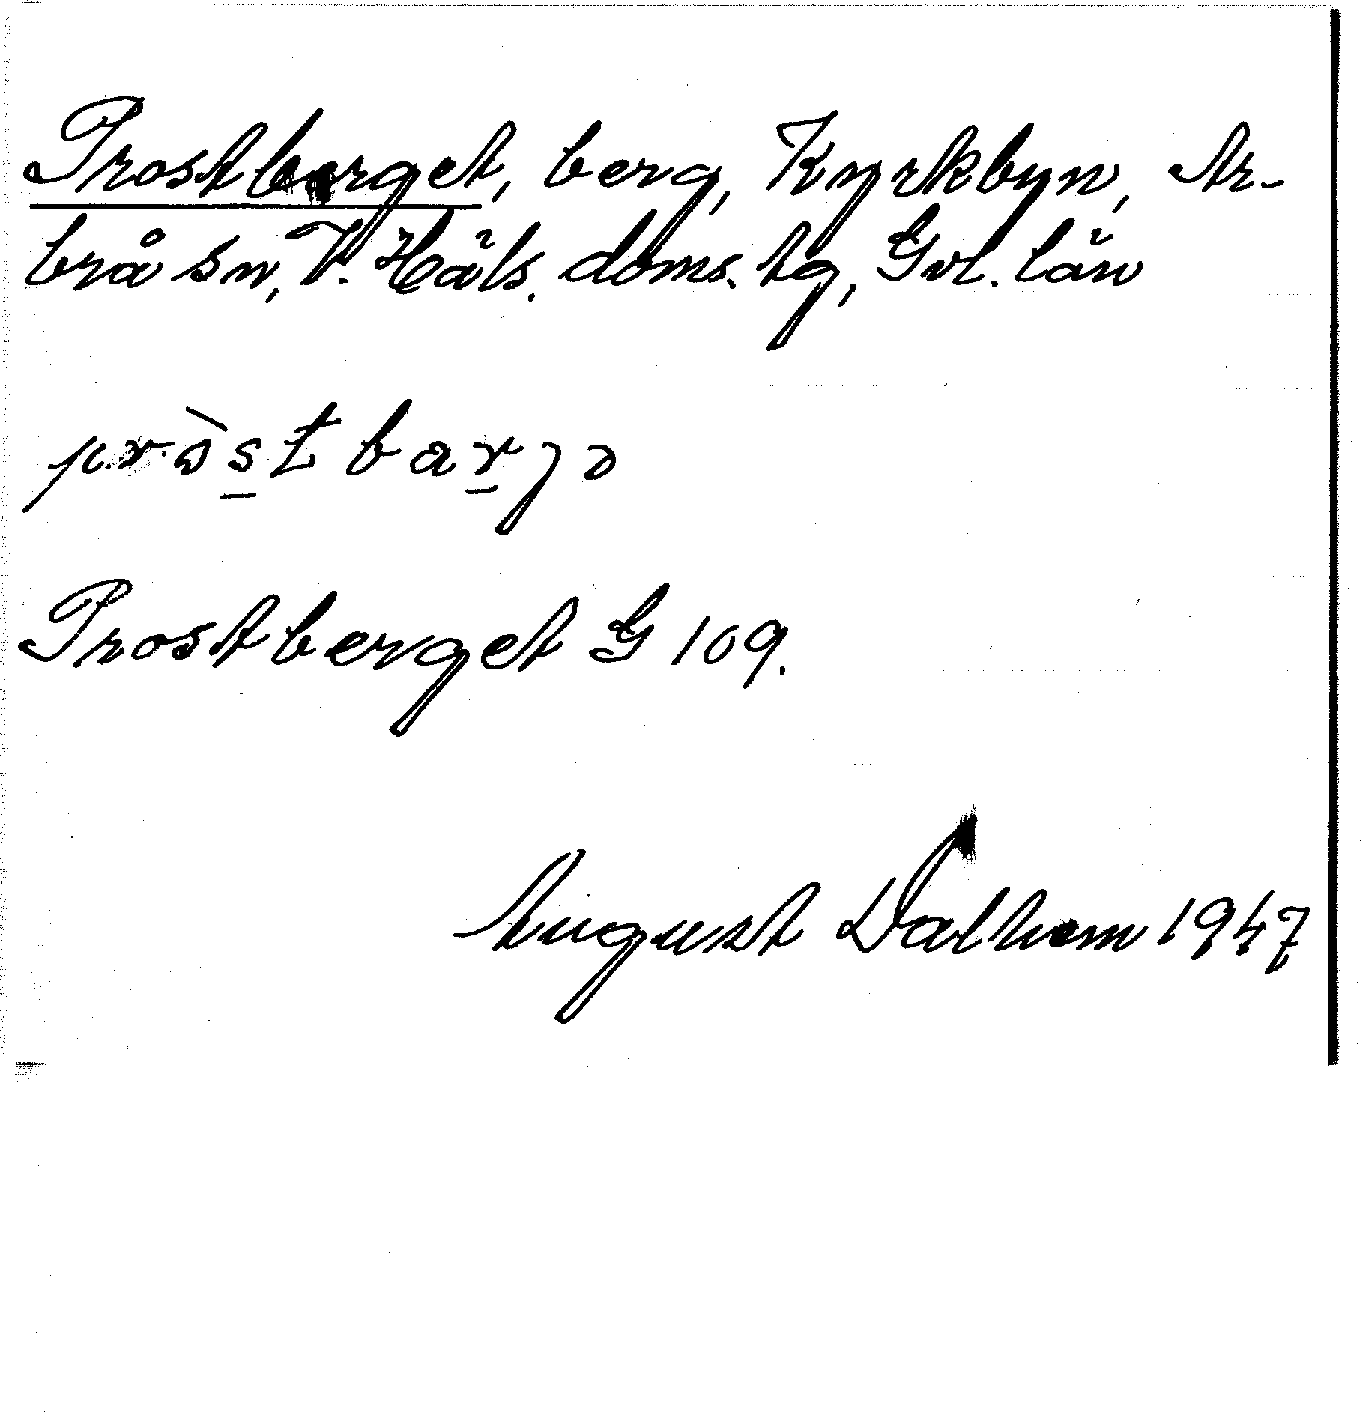 Prostberget, berg, Kyrkbyn, Ar-
brå sn, V. Häls. doms. tg, Gvl. län
pròstbarɟə
Prostberget G 109.
August Dalhem 1947